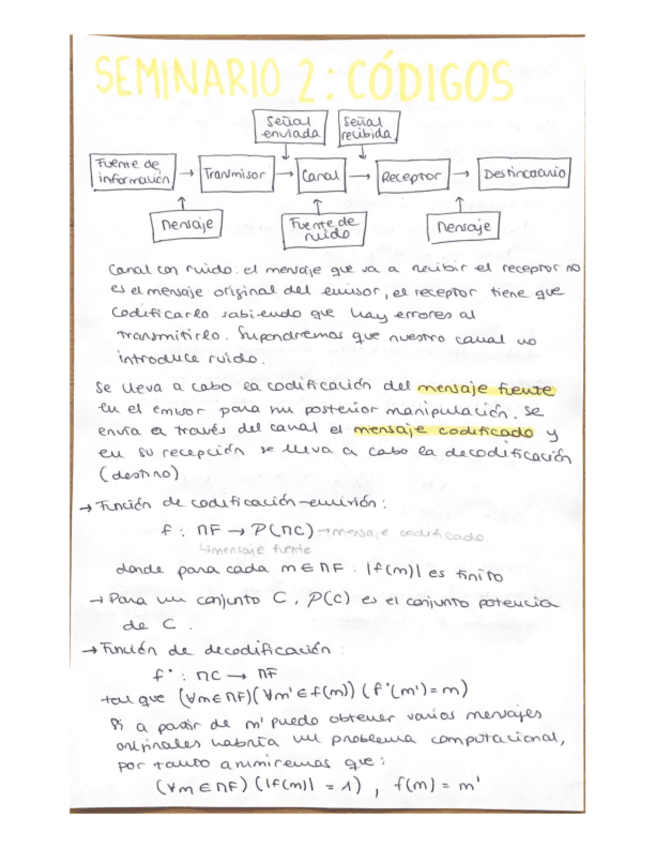 SEMINARIO 2: CÓDIGOS
Señal enviada
Señal recibida
Fuente de información → Transmisor → Canal → Receptor → Destinatario
Mensaje
Fuente de ruido
Mensaje
Canal con ruido: el mensaje que va a recibir el receptor no
es el mensaje original del emisor, el receptor tiene que
codificarlo sabiendo que hay errores al
transmitirlo. Supondremos que nuestro canal no
introduce ruido.
Se lleva a cabo la codificación del mensaje fuente
en el emisor para su posterior manipulación. Se
envía a través del canal el mensaje codificado y
en su recepción se lleva a cabo la decodificación
(destino)
→ Función de codificación-emisión:
f : MF → P(MC) → mensaje codificado.
↳ mensaje fuente
donde para cada m ∈ MF : |f(m)| es finito
→ Para un conjunto C, P(C) es el conjunto potencia
de C.
→ Función de decodificación:
f* : MC → MF
tal que (∀m ∈ MF)(∀m' ∈ f(m)) (f*(m') = m)
Si a partir de m' puedo obtener varios mensajes
originales habría un problema computacional,
por tanto asumiremos que:
(∀m ∈ MF) (|f(m)| = 1) , f(m) = m'